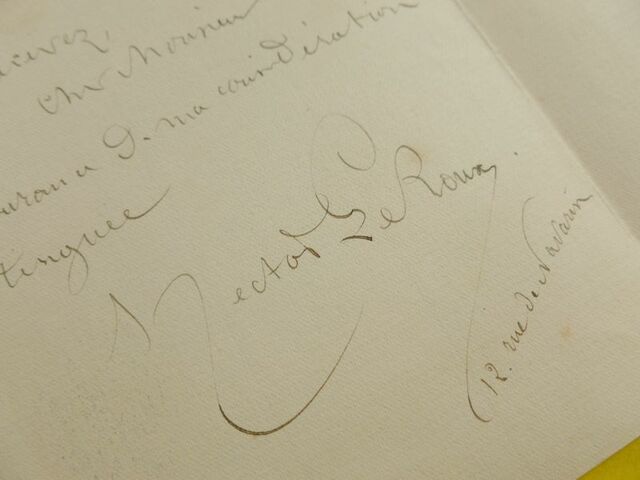 cevez,
cher Monsieur
urance de ma considération
tinguée
Hector Le Roux.
12. rue de Navarin